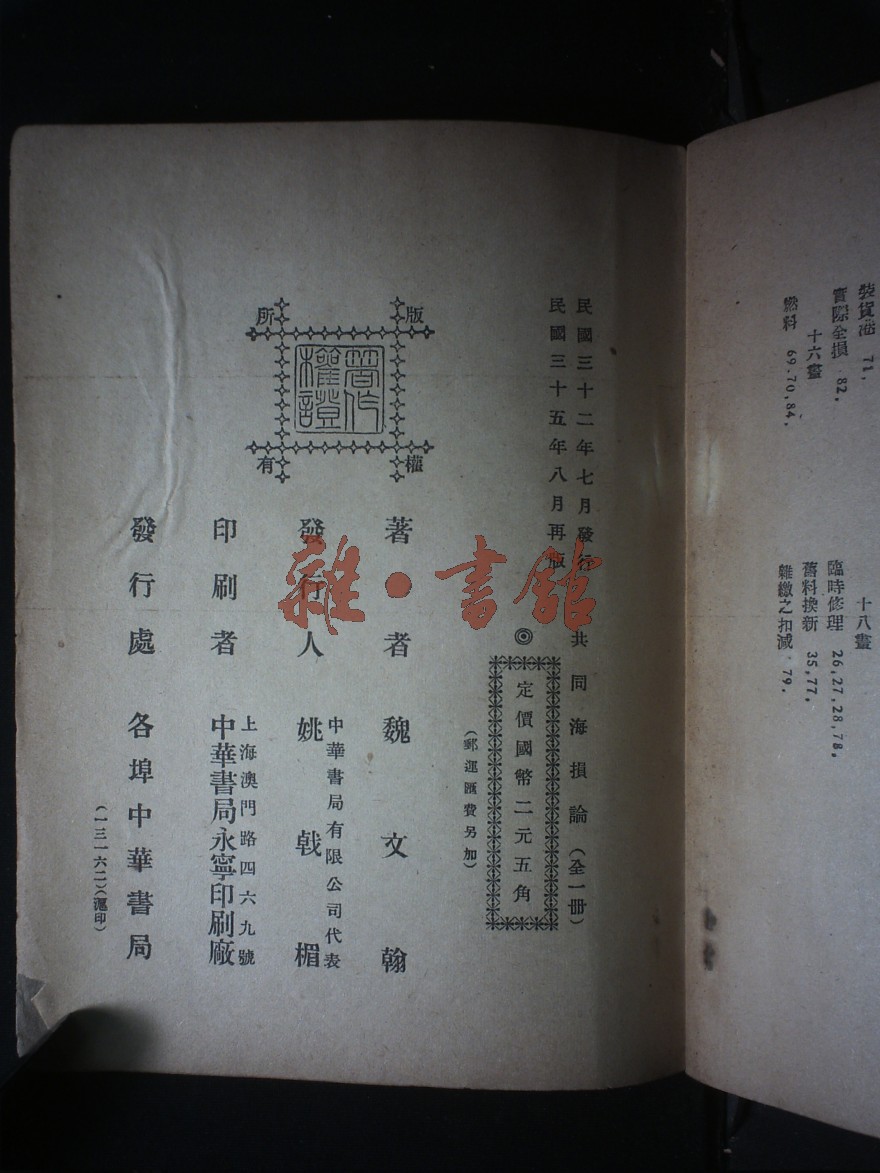 民國三十二年七月發行
民國三十五年八月再版
共同海損論（全一冊）
◎
定價國幣二元五角
（郵運匯費另加）
版權所有
著作
權證
著者 魏文翰
發行人 中華書局有限公司代表
姚戟楣
印刷者 上海澳門路四六九號
中華書局永寧印刷廠
發行處 各埠中華書局
（一三一六二）（滬印）
雜·書館
裝貨港 71.
實際全損 82.
十六畫
燃料 69,70,84.
十八畫
臨時修理 26,27,28,78.
舊料換新 35,77.
雜繳之扣減 79.